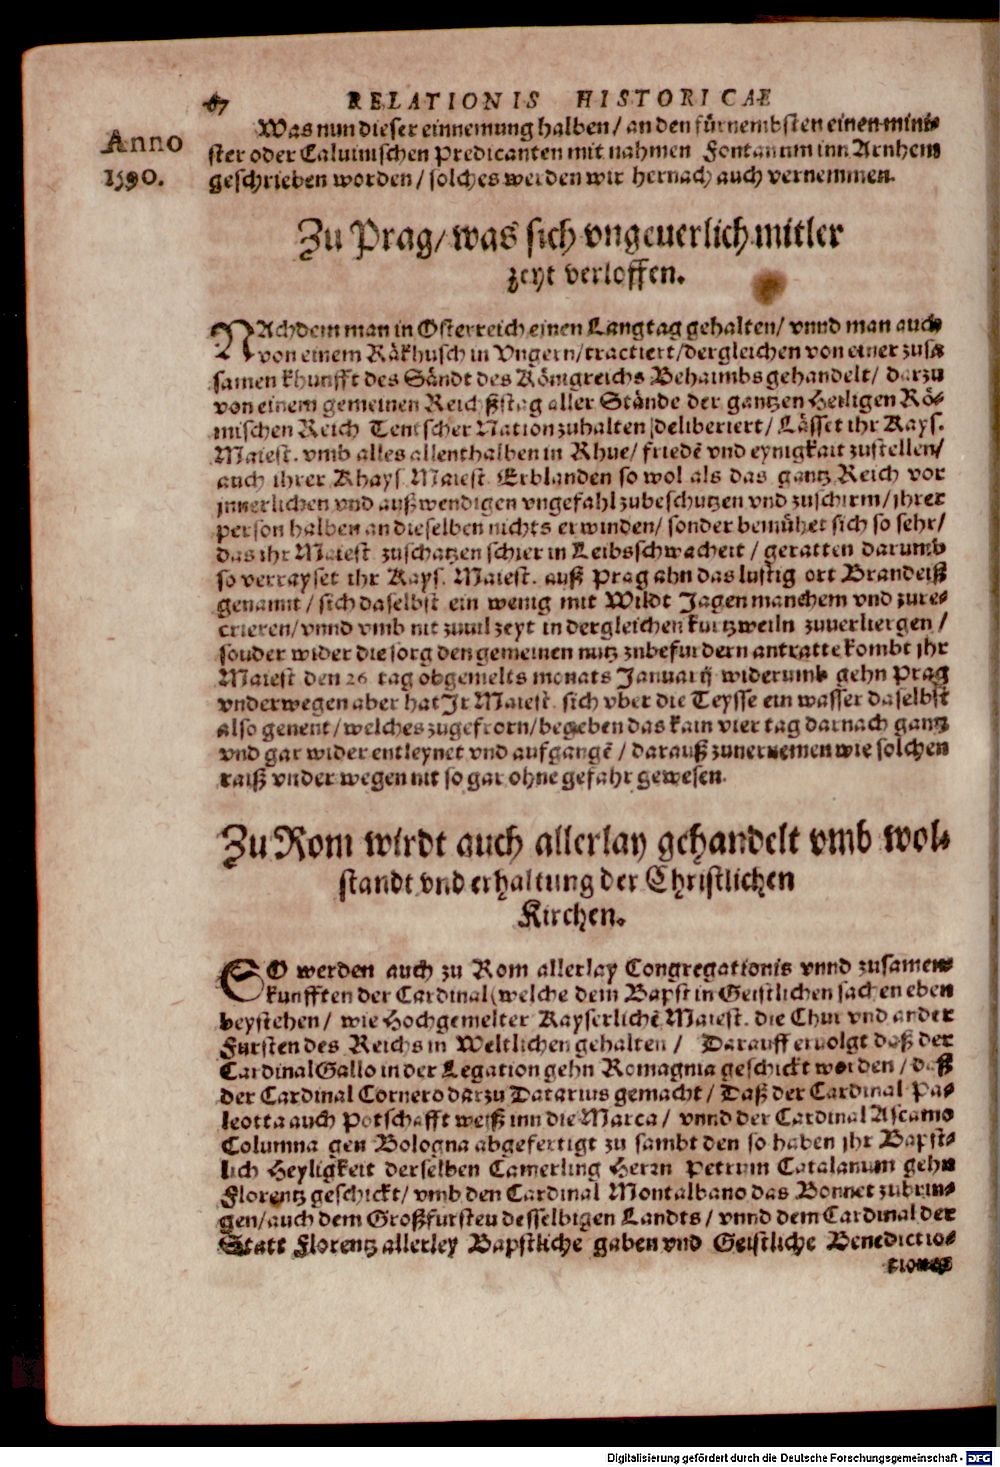 67 RELATIONIS HISTORICAE
Anno
1590.
Was nun dieser einnemung halben / an den fürnembsten einen mini-
ster oder Caluinischen Predicanten mit nahmen Fontanum inn Arnhem
geschrieben worden / solches werden wir hernach auch vernemmen.
Zu Prag / was sich vngeuerlich mitler
zeyt verloffen.
NAchdem man in Osterreich einen Langtag gehalten / vnnd man auch
von einem Räkhusch in Vngern / tractiert / dergleichen von einer zusa
samen khunfft des Ständt des Königreichs Behaimbs gehandelt / darzu
von einem gemeinen Reichßtag aller Stände der gantzen Heiligen Rö-
mischen Reich Teutscher Nation zuhalten deliberiert / Lässet ihr Kays.
Maiest. vmb alles allenthalben in Rhue / friedē vnd eynigkait zustellen /
auch ihrer Khays. Maiest. Erblanden so wol als das gantz Reich vor
innerlichen vnd außwendigen vngefahl zubeschutzen vnd zuschirm / ihrer
person halben an dieselben nichts erwinden / sonder bemühet sich so sehr /
das ihr Maiest. zuschatzen schier in Leibsschwacheit / geratten darumb
so verrayset ihr Kays. Maiest. auß Prag ahn das lustig ort Brandeiß
genannt / sich daselbst ein wenig mit Wildt Jagen manchem vnd zure-
crieren / vnnd vmb nit zuuil zeyt in dergleichen kurtzweiln zuuerliergen /
sonder wider die sorg den gemeinen nutz zubefurdern antratte kombt ihr
Maiest den 26 tag obgemelts monats Januarij widerumb gehn Prag
vnderwegen aber hat Jr Maiest. sich vber die Teysse ein wasser daselbst
also genent / welches zugefrorn / begeben das kain vier tag darnach gantz
vnd gar wider entleynet vnd aufgangē / darauß zunernemen wie solchen
raiß vnder wegen nit so gar ohne gefahr gewesen.
Zu Rom wirdt auch allerlay gehandelt vmb wol-
standt vnd erhaltung der Christlichen
Kirchen.
SO werden auch zu Rom allerlay Congregationis vnnd zusamen-
kunfften der Cardinal (welche dem Bapst in Geistlichen sachen eben
beystehen / wie Hochgemelter Kayserlichē Maiest. die Chur vnd ander
Fursten des Reichs in Weltlichen gehalten / Darauff eruolgt daß der
Cardinal Gallo in der Legation gehn Romagnia geschickt worden / daß
der Cardinal Cornero darzu Datarius gemacht / Daß der Cardinal Pa-
leotta auch Potschafft weiß inn die Marca / vnnd der Cardinal Ascanio
Columna gen Bologna abgefertigt zu sambt den so haben ihr Bapst-
lich Heyligkeit derselben Camerling Herrn Petrum Catalanum gehn
Florentz geschickt / vmb den Cardinal Montalbano das Bonnet zubrin-
gen / auch dem Großfursten desselbigen Landts / vnnd dem Cardinal der
Statt Florentz allerley Bapstliche gaben vnd Geistliche Benedictio-
tiones
Digitalisierung gefördert durch die Deutsche Forschungsgemeinschaft - DFG